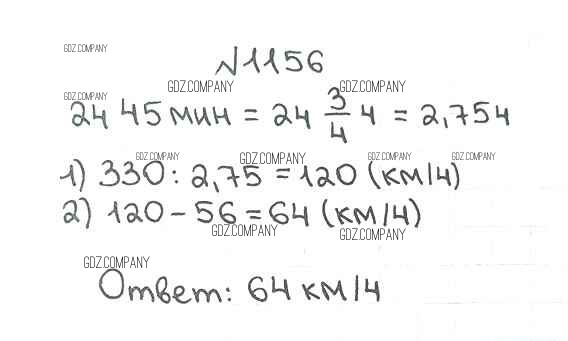 GDZ.COMPANY
№1156
GDZ.COMPANY GDZ.COMPANY
GDZ.COMPANY
2ч 45 мин = 2ч 3/4 ч = 2,75ч
GDZ.COMPANY GDZ.COMPANY GDZ.COMPANY GDZ.COMPANY
1) 330 : 2,75 = 120 (км/ч)
2) 120 - 56 = 64 (км/ч)
GDZ.COMPANY GDZ.COMPANY
GDZ.COMPANY
Ответ: 64 км/ч